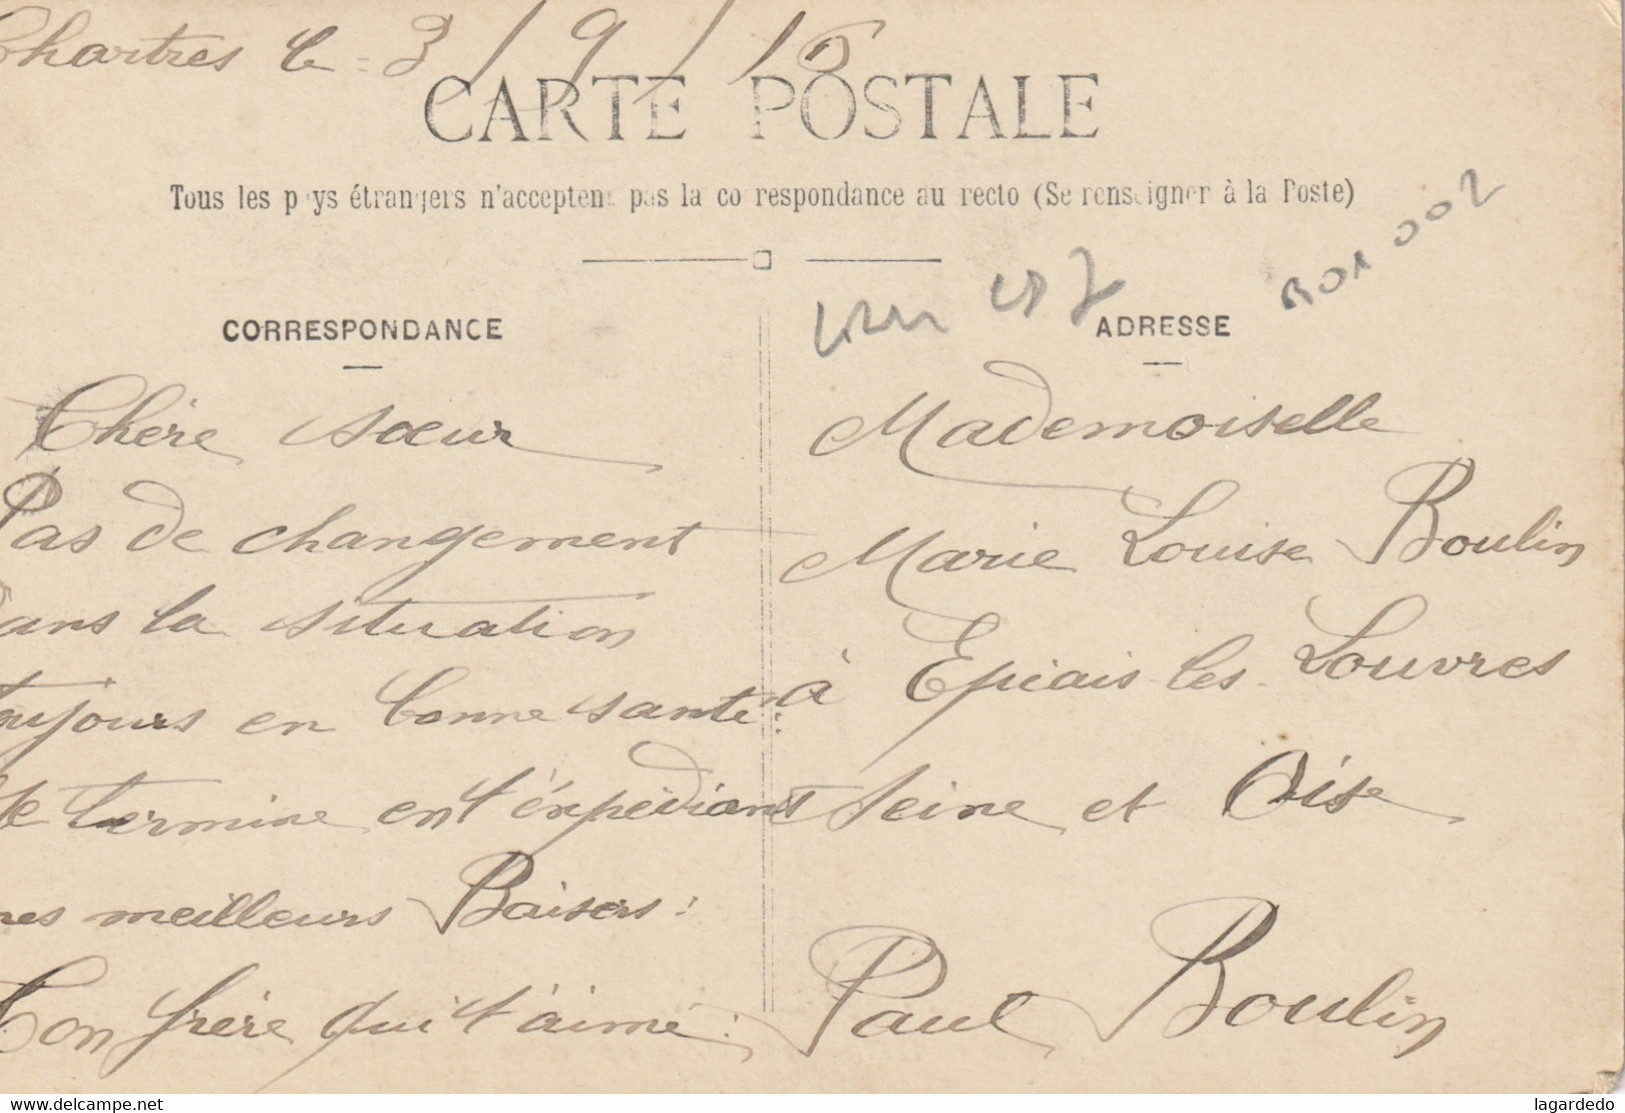 Chartres le 3/9/15
CARTE POSTALE
Tous les pays étrangers n'acceptent pas la correspondance au recto (Se renseigner à la Poste)
BOX 002
CORRESPONDANCE
ADRESSE
Chère sœur
Pas de changement
dans la situation
toujours en bonne santé:
Je termine en t'éxpédiant
mes meilleurs Baisers:
Ton frère qui t'aime:
Mademoiselle
Marie Louise Boulin
à Epiais-les-Louvres
Seine et Oise
Paul Boulin
www.delcampe.net
lagardedo